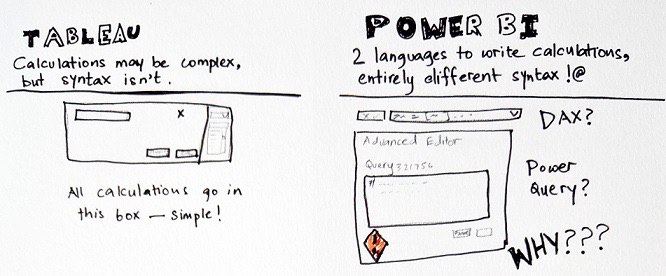 TABLEAU
Calculations may be complex,
but syntax isn't.
X
All calculations go in
this box — simple!
POWER BI
2 languages to write calculations,
entirely different syntax !@
DAX?
Advanced Editor
Query321756
#
Power
Query?
WHY???